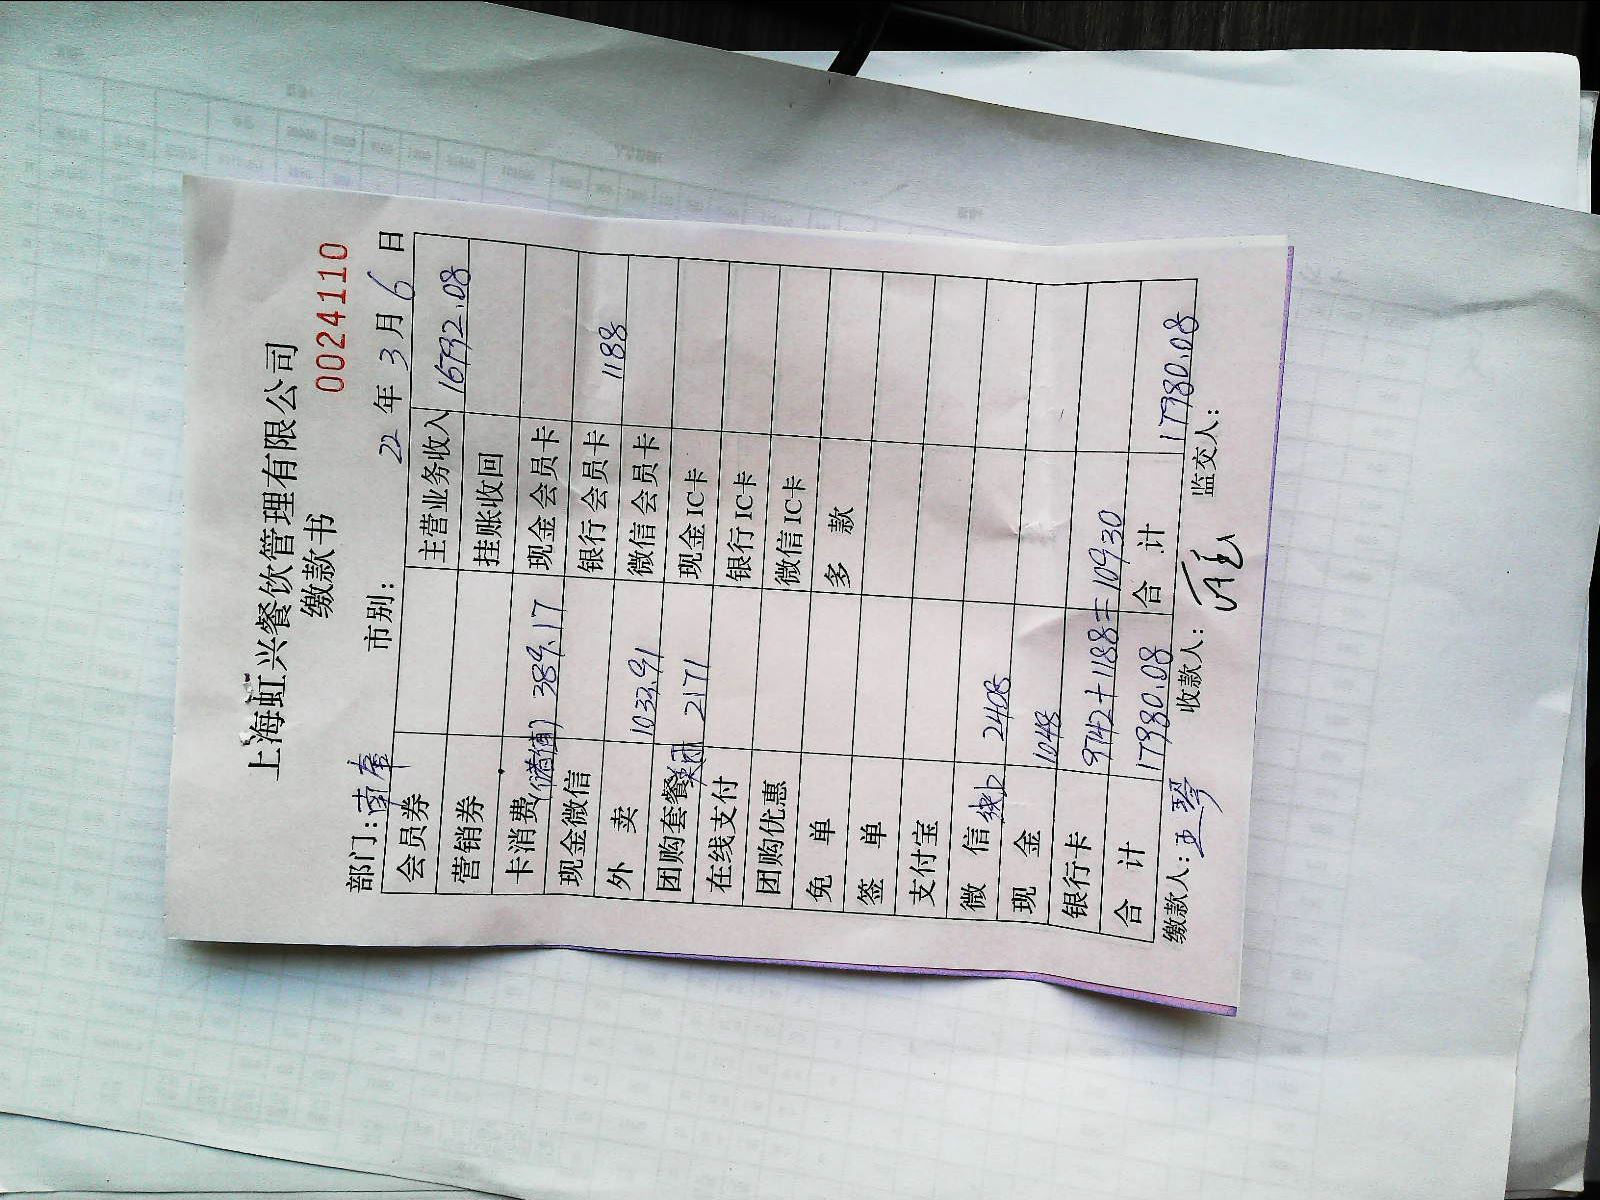 上海虹兴餐饮管理有限公司
缴款书 0024110
部门: 市别: 22 年 3 月 6 日
会员券 主营业务收入 16792.08
营销券 挂账收回
卡消费(储值) 389.17 现金会员卡
现金微信 银行会员卡 1188
外 卖 1033.91 微信会员卡
团购套餐美团 2171 现金IC卡
在线支付 银行IC卡
团购优惠 微信IC卡
免 单 多 款
签 单
支付宝
微 信 2408
现 金 1048
银行卡 9742+1188=10930
合 计 17980.08 合 计 17980.08
缴款人: 王琴 收款人: 监交人: